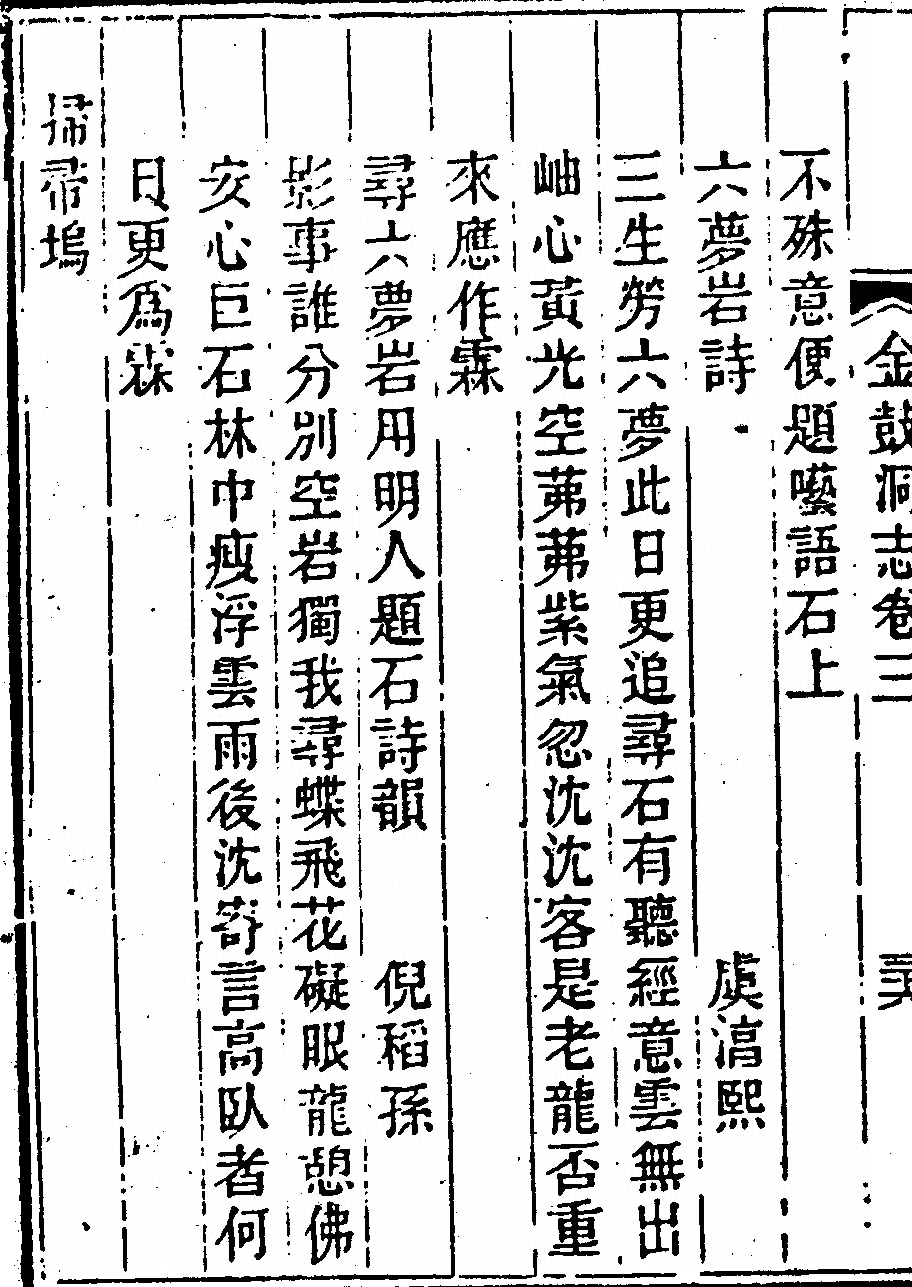 金鼓洞志卷三
不殊意便題囈語石上
六夢岩詩 虞淳熙
三生勞六夢此日更追尋石有聽經意雲無出
岫心黃光空茀茀紫氣忽沈沈客是老龍否重
來應作霖
尋六夢岩用明人題石詩韻 倪稻孫
影事誰分別空岩獨我尋蝶飛花礙眼龍憩佛
安心巨石林中瘦浮雲雨後沈寄言高臥者何
日更爲霖
掃帚塢